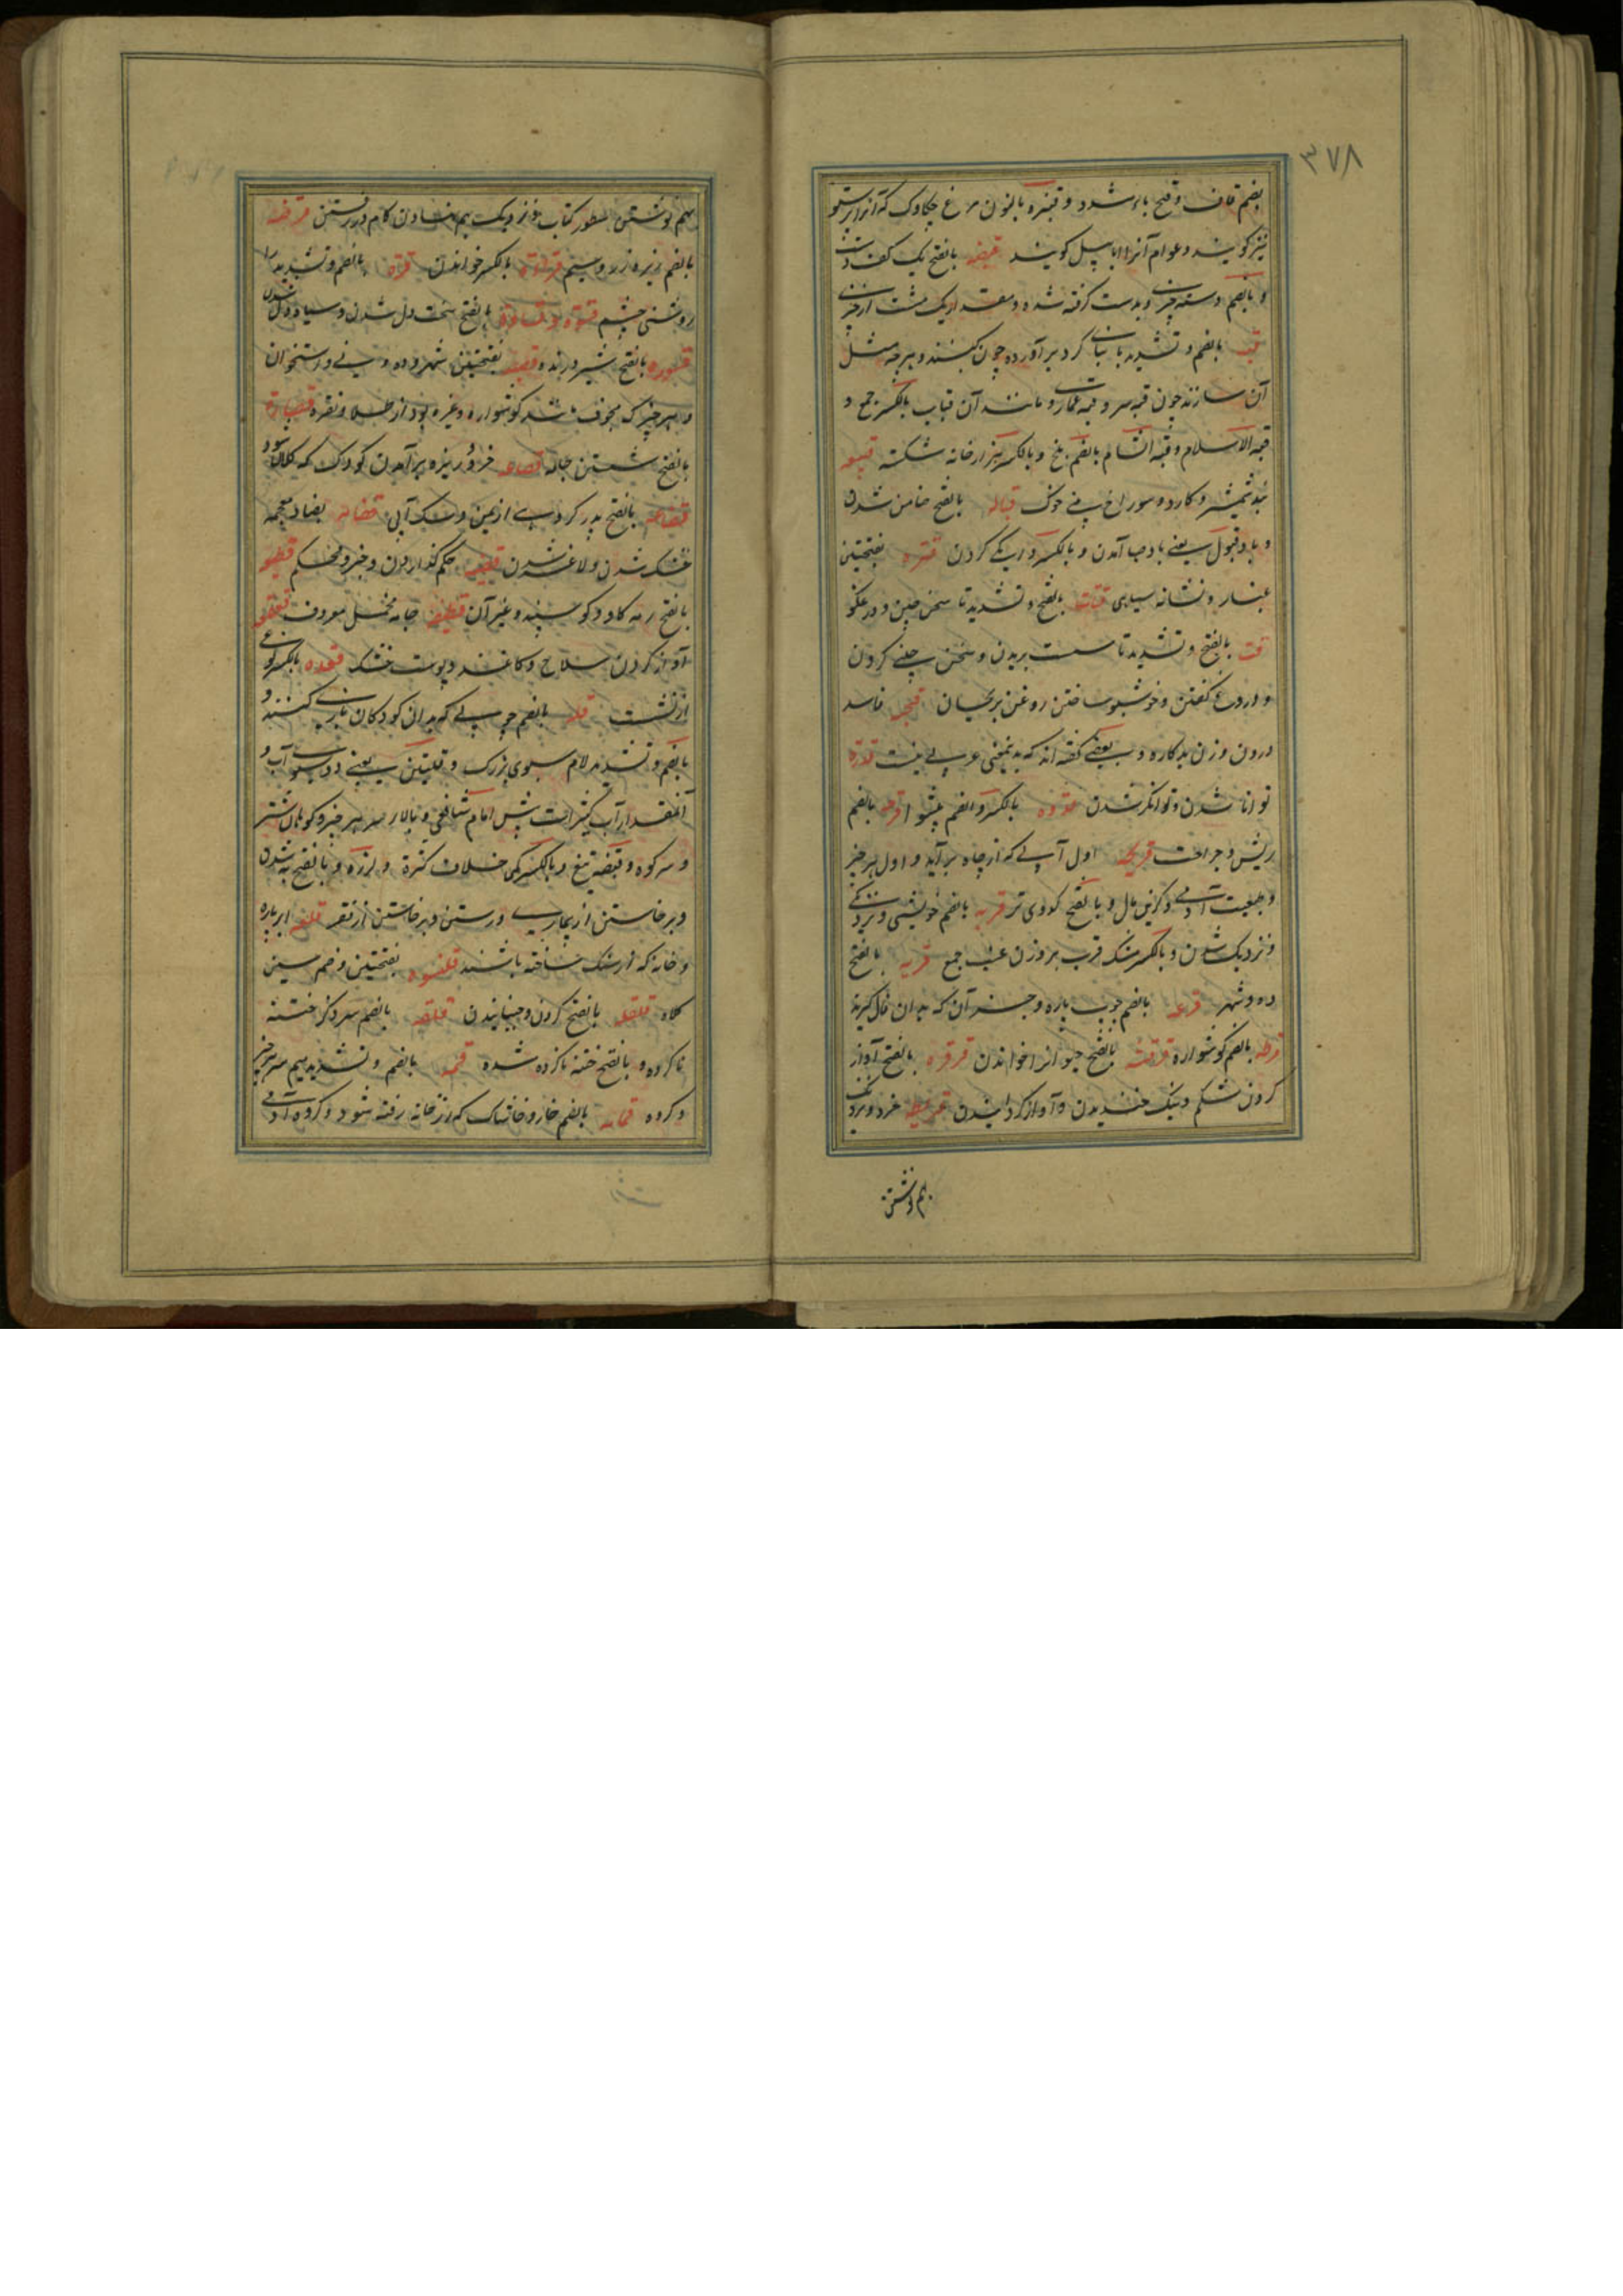 ۳۷۸
بضم قاف و فتح باء مشدد و قنبره بالنون مرغ چکاوک که آنرا پرستو
نیز گویند و عوام آنرا ابابیل گویند قبضه بالفتح یک کف دست
و بالضم دسته چیزی و بدست گرفته شده و مقدار یک مشت از چیزی
قبه بالضم و تشدید با بنای گرد برآورده چون گنبد و هرچه مثل
آن سازند چون قبه سر و قبه عماری و مانند آن قباب بالکسر جمع و
قبة الاسلام و قبه الشام بالضم بلخ و بالکسر نیز از خانه شکسته قبیعه
بند شمشیر و کارد و سوراخ بینی خوک قباله بالفتح ضامن شدن
و باد قبول یعنی باد صبا آمدن و بالکسر دایگی کردن قتره بفتحتین
غبار و نشانه سیاهی قتات بالفتح و تشدید تا سخن چین و دروغگو
قت بالفتح و تشدید تا سست بریدن و سخن چینی کردن
و دروغ گفتن و خوشبو ساختن روغن بریحان قحبه فاسد
درون و زن بدکاره و بعضی گفته اند که بدینمعنی عربی نیست قدرة
توانا شدن و توانگر شدن قدوه بالکسر و الضم پیشوا قرحه بالضم
ریش و جراحت قریحه اول آبی که از چاه برآید و اول هر چیز
و طبیعت آدمی و گزین مال و بالفتح کدوی تر قربه بالضم خویشی و نزدیکی
و نزدیک شدن و بالکسر مشک قرب بروزن عنب جمع قریه بالفتح
ده و شهر قرعه بالضم چوب پاره و جز آن که بدان فال گیرند
قرطه بالضم گوشواره بالفتح جیوانرا خواندن قرقره بالفتح آواز
کردن شکم و نیک خندیدن و آواز گردانیدن قرمطه خرد و نزدیک
بهم نوشتن
بهم نوشتن سطور کتاب و نزدیک بهم نهادن کام در رفتن
بالضم زیره زر و سیم قرائة بالکسر خواندن قرة بالضم و تشدید را
روشنی چشم قسوة و قساوة بالفتح سخت دل شدن و سیاه دل شدن
قسوره بالفتح شیر درنده قصبه بفتحتین شهر و ده و نی و استخوان
و هر چیز که مجوف باشد گوشواره و غیره بود از طلا و نقره قصارة
بالفتح شستن جامه قصاعه خرد و ریزه برآمدن کودک که کلان نشود
قضاعه بالفتح پدر گروهی از یمن و سگ آبی بضاد معجمه
خشک شدن و لاغر شدن قضیه حکم گذاردن و خبر و محکم
بالفتح رمه گاو و گوسپند و غیر آن قطیفه جامه مخمل معروف قعقعه
آواز کردن سلاح و کاغذ و پوست خشک قعده بالکسر نوعی
از نشست قله بالضم چوبی که بدان کودکان بازی کنند و
بالضم و تشدید لام سبوی بزرگ و قلتین یعنی دو سبو آب و
آنقدار آب کثیر است پیش امام شافعی و بالا و سر هر چیز و کوهان شتر
و سر کوه و قبضه تیغ و بالکسر کمی خلاف کثرة و لرزه و بالفتح به شدن
و برخاستن از بیماری و رستن و برخاستن از فقر قلعه ابر پاره
و خانه که از سنگ ساخته باشند قلنسوه بفتحتین و ضم سین
کلاه قلقله بالفتح کردن و جنبانیدن قلفه بالضم سر ذکر ختنه
ناکرده و بالفتح ختنه ناکرده شده قمه بالضم و تشدید میم سر هر چیز
و گروه قمامه بالضم خار و خاشاک که از خانه رفته شود و گروه آدمی